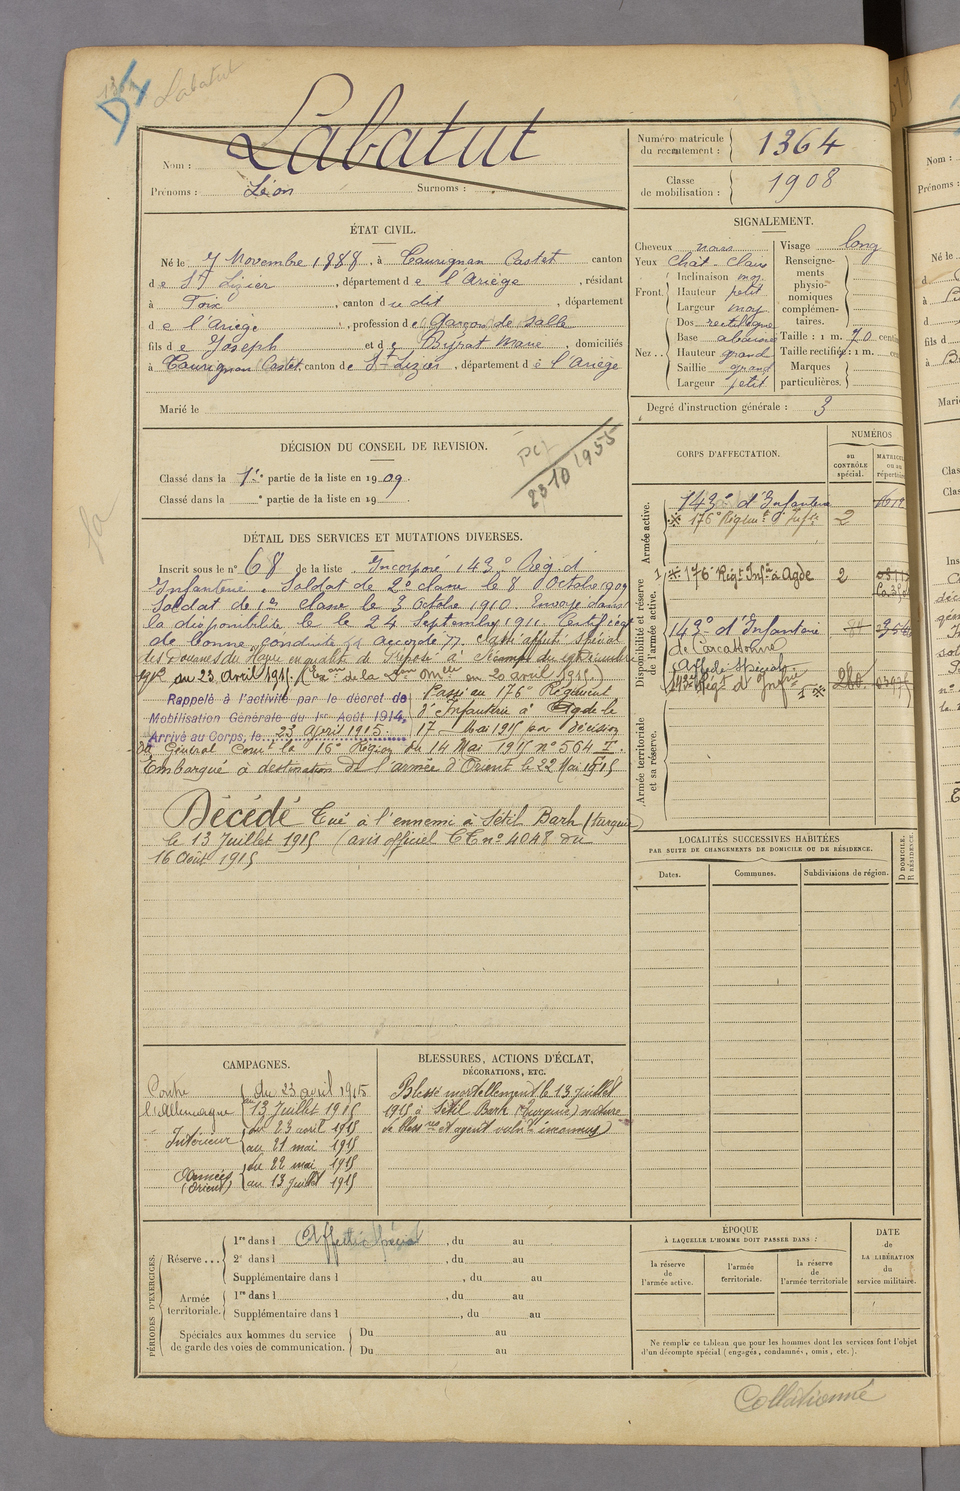 1364
Labatut
Nom : Labatut
Prénoms : Léon Surnoms :
Numéro matricule du recrutement : 1364
Classe de mobilisation : 1908
ÉTAT CIVIL.
Né le 7 Novembre 1888, à Taurignan Castet canton
de St Lizier, département de l'Ariège, résidant
à Foix, canton du dit, département
de l'Ariège, profession de Garçon de Salle
fils de Joseph et de Marie, domiciliés
à Taurignan Castet, canton de St Lizier, département de l'Ariège
Marié le
SIGNALEMENT.
Cheveux noirs
Yeux chât. clairs
Front. Inclinaison moy.
Hauteur petit
Largeur moy
Nez... Dos rectiligne
Base abaissée
Hauteur grand
Saillie grand
Largeur petit
Visage long
Renseignements physionomiques complémentaires.
Taille : 1 m. 70 cent
Taille rectifiée : 1 m. ce
Marques particulières.
Degré d'instruction générale : 3
DÉCISION DU CONSEIL DE REVISION.
Classé dans la 1re partie de la liste en 1909.
Classé dans la e partie de la liste en 19
23 10 1955
DÉTAIL DES SERVICES ET MUTATIONS DIVERSES.
Inscrit sous le n° 68 de la liste. Incorporé 143e Rég. d'
Infanterie. Soldat de 2e classe le 8 Octobre 1909
Soldat de 1re classe le 3 Octobre 1910. Envoyé dans
la disponibilité le le 24 Septembre 1911. Certificat
de bonne conduite accordé. Classé affecté spécial
au 23 avril 1915. en 20 avril 1915.)
Rappelé à l'activité par le décret de
Mobilisation Générale du 1er Août 1914,
Arrivé au Corps, le 23 avril 1915.
Passé au 176e Régiment
d'Infanterie à Agde le
17 Mai 1915 par décision
du Général Comt la 16e Région du 14 Mai 1915 n° 564 I.
Embarqué à destination de l'armée d'Orient le 22 Mai 1915
Décédé Tué à l'ennemi à Sétil Barh (turquie)
le 13 Juillet 1915 (avis officiel CT n° 4048 du
16 Août 1915
CORPS D'AFFECTATION.
NUMÉROS
au CONTRÔLE spécial.
MATRICULE ou au répertoire
Armée active.
143e d'Infanterie
176e Régimt d'Infie 2
Disponibilité et réserve de l'armée active.
176e Régt Infie à Agde 2
143e d'Infanterie
de Carcassonne
Affecté Spécial
143e Régt d'Infrie 280
Armée territoriale et sa réserve.
LOCALITÉS SUCCESSIVES HABITÉES
PAR SUITE DE CHANGEMENTS DE DOMICILE OU DE RÉSIDENCE.
Dates. Communes. Subdivisions de région. D DOMICILE. R RÉSIDENCE.
CAMPAGNES.
Contre l'Allemagne du 23 avril 1915
au 13 Juillet 1915
Intérieur du 23 avril 1915
au 21 mai 1915
Armées (Orient) du 22 mai 1915
au 13 Juillet 1915
BLESSURES, ACTIONS D'ÉCLAT,
DÉCORATIONS, ETC.
Blessé mortellement le 13 juillet
1915 à Sétil Barh (Turquie) nature
de bless res et agent vuln t inconnus)
PÉRIODES D'EXERCICES.
Réserve... 1re dans l Affecté Spécial, du au
2e dans l , du au
Supplémentaire dans l , du au
Armée territoriale. 1re dans l , du au
Supplémentaire dans l , du au
Spéciales aux hommes du service de garde des voies de communication. Du au
Du au
ÉPOQUE
À LAQUELLE L'HOMME DOIT PASSER DANS :
la réserve de l'armée active.
l'armée territoriale.
la réserve de l'armée territoriale
DATE de LA LIBÉRATION du service militaire.
Ne remplir ce tableau que pour les hommes dont les services font l'objet
d'un décompte spécial (engagés, condamnés, omis, etc.).
Collationné